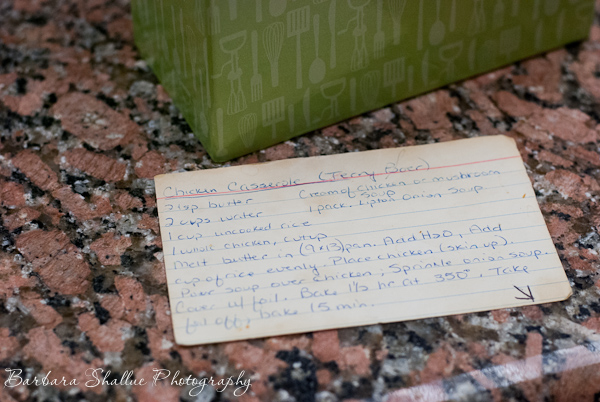 Chicken Casserole (Terry Baer)
2 tbsp butter Cream of Chicken or mushroom
2 cups water Soup
1 cup uncooked rice 1 pack. Lipton Onion Soup.
1 whole chicken, cut up
Melt butter in (9x13) pan. Add H2O, Add
cup of rice evenly. Place chicken (skin up).
Pour soup over chicken; Sprinkle onion soup.
Cover w/ foil. Bake 1½ hr at 350°. Take
foil off; bake 15 min.
Barbara Shallue Photography